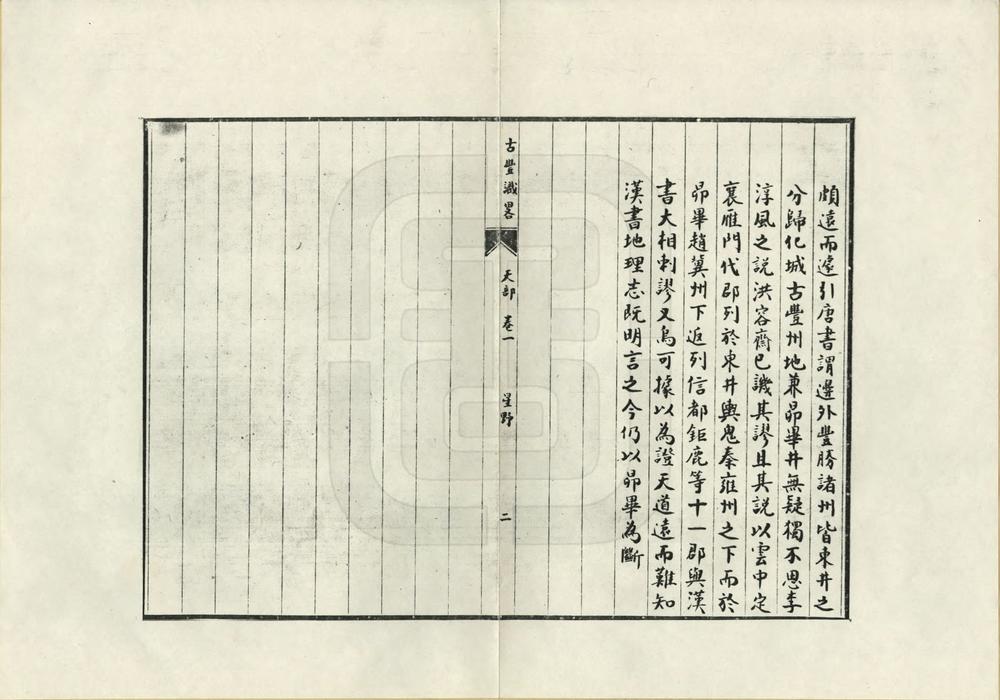 頗遠而遽引唐書謂邊外豐勝諸州皆東井之
分歸化城古豐州地兼昴畢井無疑獨不思李
淳風之說洪容齋已譏其謬且其說以雲中定
襄雁門代郡列於東井輿鬼秦雍州之下而於
昴畢趙冀州下返列信都鉅鹿等十一郡與漢
書大相刺謬又烏可據以為證天道遠而難知
漢書地理志既明言之今仍以昴畢為斷
古豐識畧
天部 卷一
星野
二